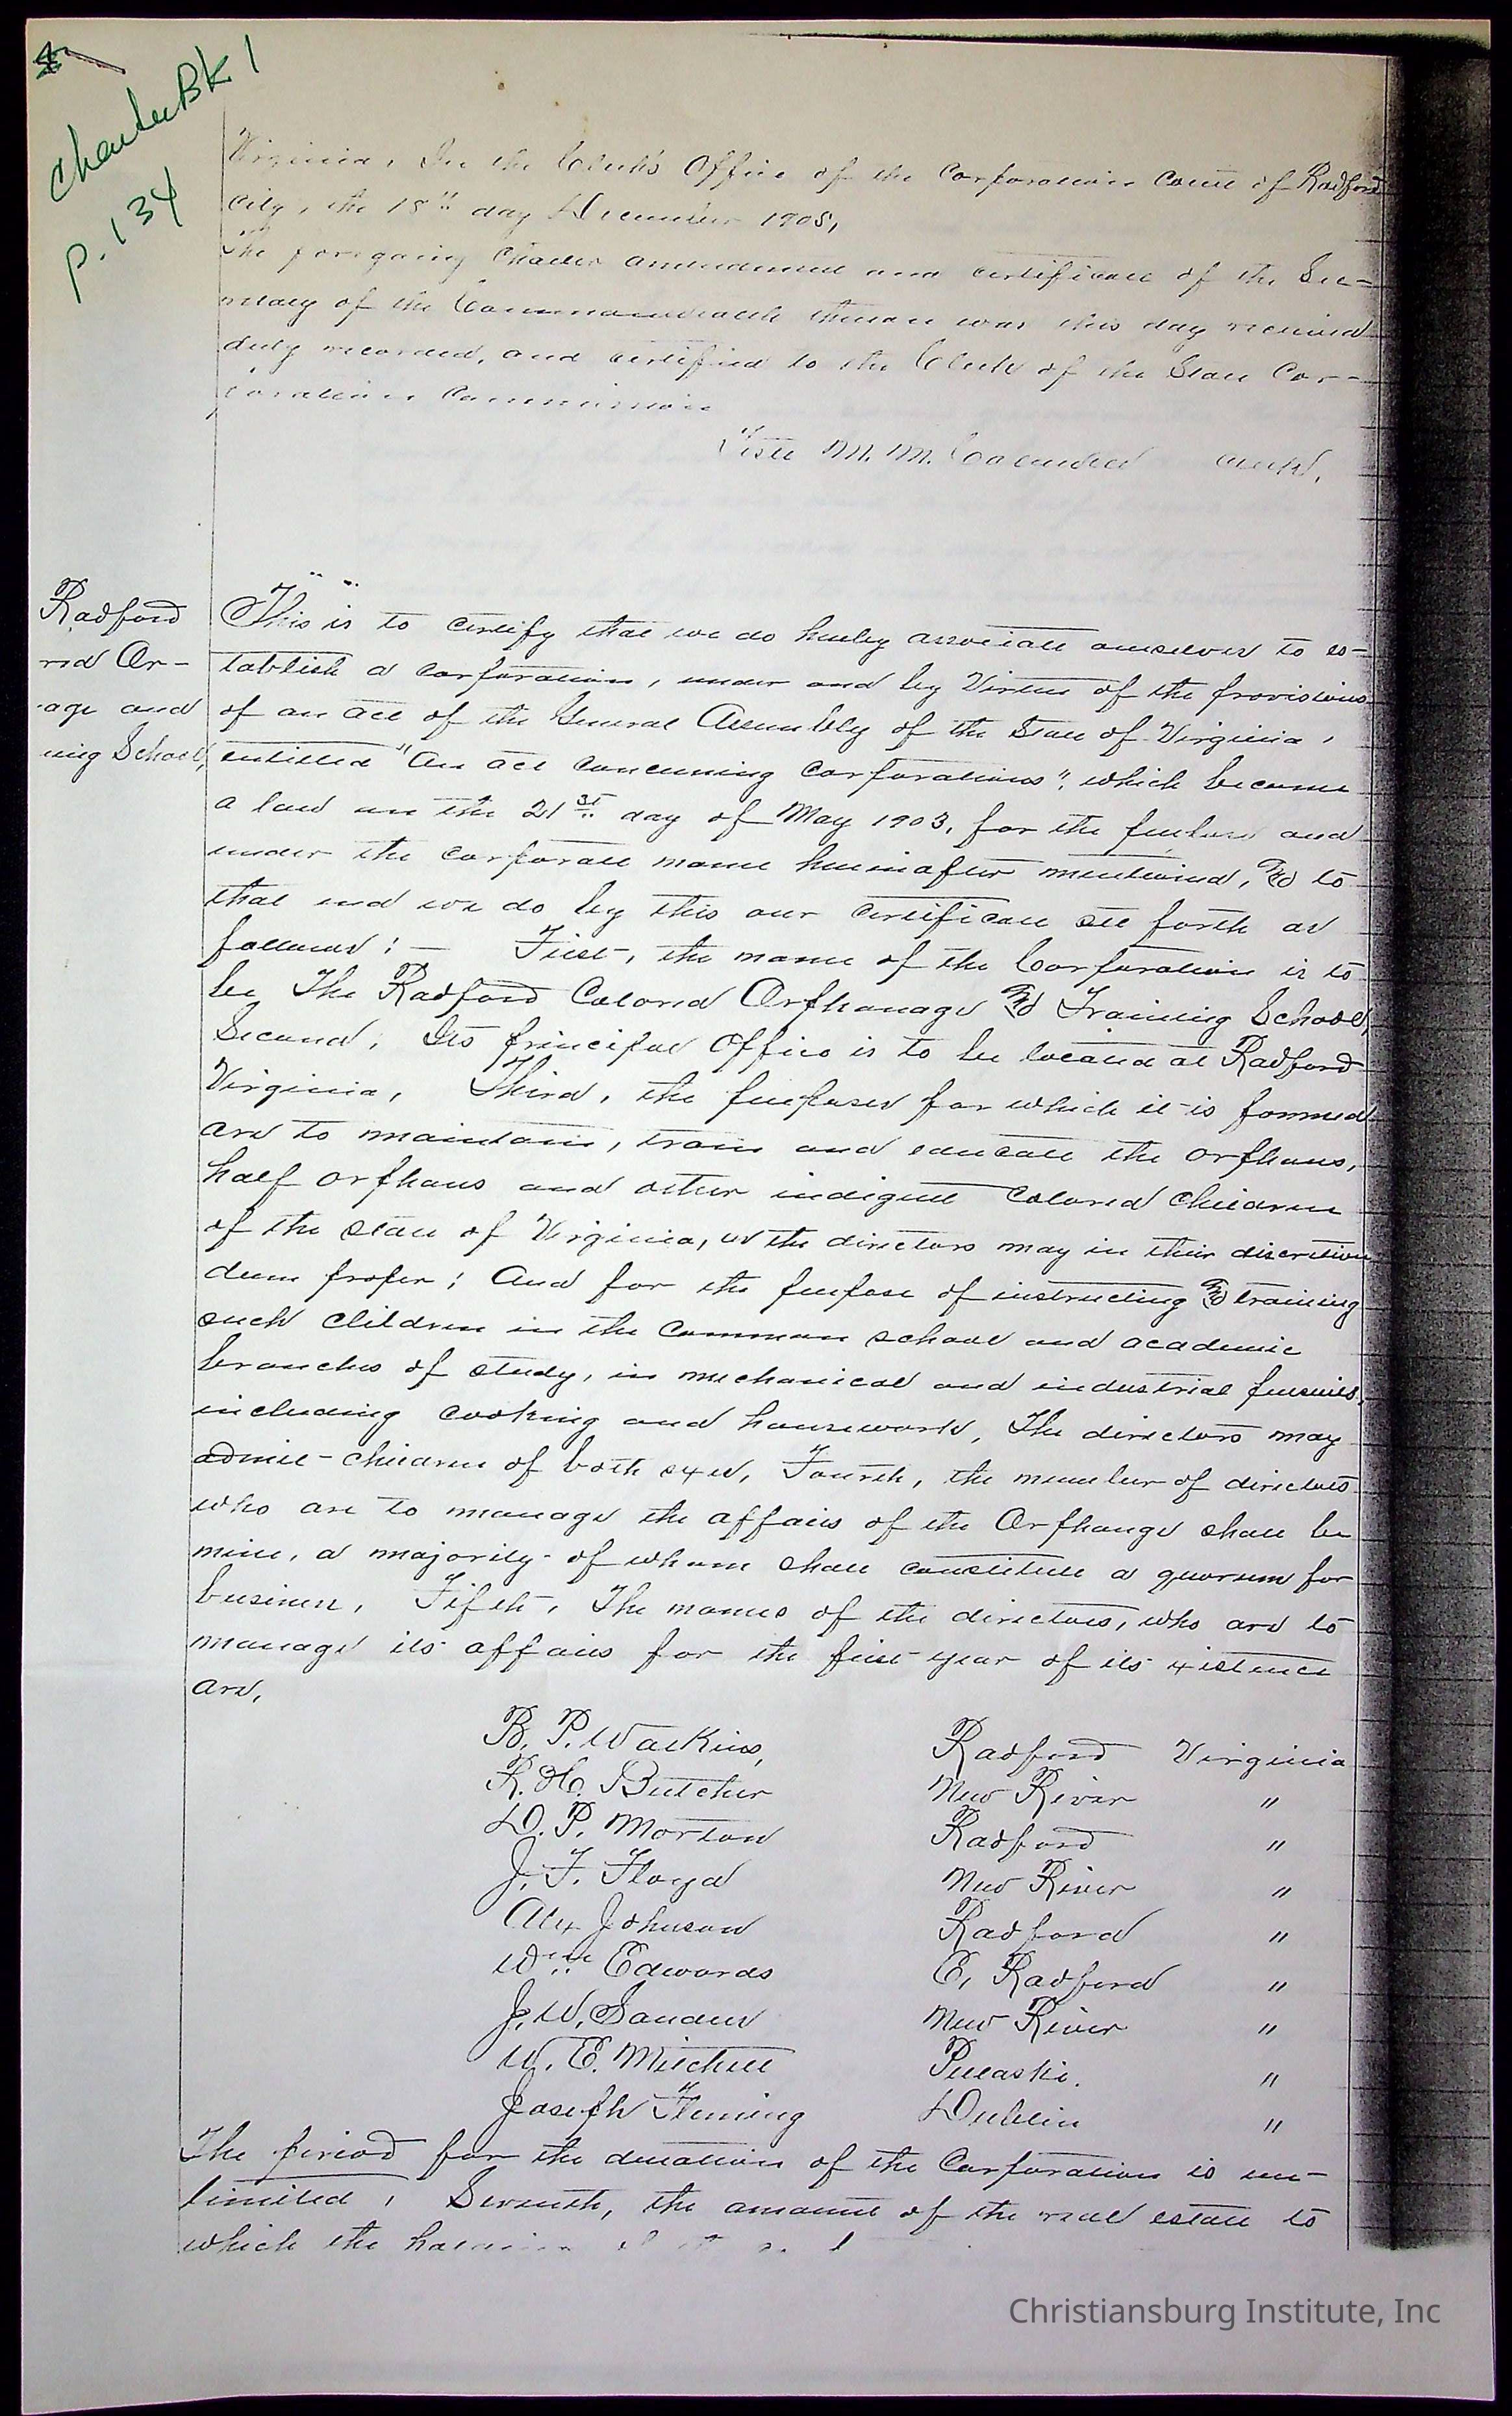 Charter BK 1
p. 134
Virginia, In the Clerk's Office of the Corporation Court of Radford
City, the 18" day December 1905,
The foregoing Charter amendment and certificate of the Sec-
retary of the Commonwealth thereon was this day received
duly recorded, and certified to the Clerk of the State Cor-
poration Commission
Teste M. M. Clerk.
Radford
red Or-
age and
ning School,
This is to certify that we do hereby associate ourselves to es-
tablish a corporation, under and by Virtue of the provisions
of an act of the General Assembly of the State of Virginia,
entitled "An act concerning corporations", which became
a law on the 21st day of May 1903, for the purpose and
under the corporate name hereinafter mentioned, & to
that end we do by this our certificate set forth as
follows: — First, the name of the Corporation is to
be The Radford Colored Orphanage & Training School,
Second, Its principal Office is to be located at Radford
Virginia, Third, the purposes for which it is formed
are to maintain, train and educate the orphans,
half orphans and other indigent colored children
of the state of Virginia, as the directors may in their discretion
deem proper; And for the purpose of instructing & training
such children in the common school and academic
branches of study, in mechanical and industrial pursuits,
including cooking and housework, The directors may
admit children of both sexes, Fourth, the number of directors
who are to manage the affairs of the Orphange shall be
nine, a majority of whom shall constitute a quorum for
business, Fifth, The names of the directors, who are to
manage its affairs for the first year of its existence
are,
B. P. Watkins, Radford Virginia
R. H. Butcher New River "
D. P. Morton Radford "
J. F. Floyd New River "
Alex Johnson Radford "
Wm Edwards E, Radford "
J. W. Sanders New River "
W. E. Mitchell Pulaski. "
Joseph Fleming Dublin "
The period for the duration of the Corporation is un-
limited, Seventh, the amount of the real estate to
which the
Christiansburg Institute, Inc